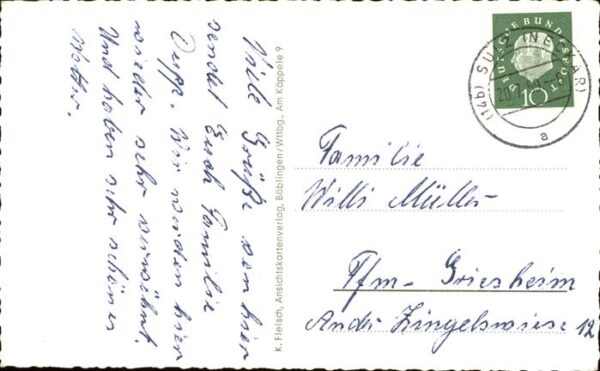 Viele Grüße von hier
sendet Euch Familie
Wir werden hier
wieder sehr verwöhnt.
Und haben sehr schönes
Wetter.
K. Fleisch, Ansichtskartenverlag, Böblingen/Wttbg., Am Käppele 9
DEUTSCHE BUNDESPOST
10
(14b) SULZ (NECKAR)
a
Familie
Willi Müller
Ffm-Griesheim
Zingelswiese 12